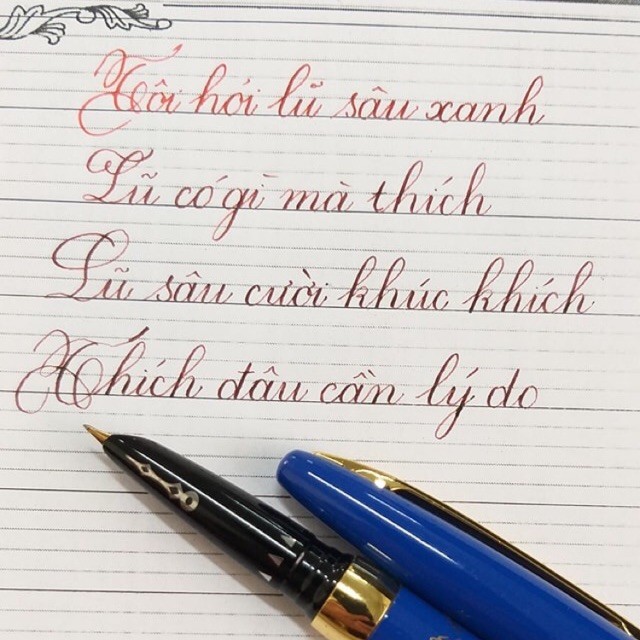 Tôi hỏi lũ sâu xanh
Lũ có gì mà thích
Lũ sâu cười khúc khích
Thích đâu cần lý do